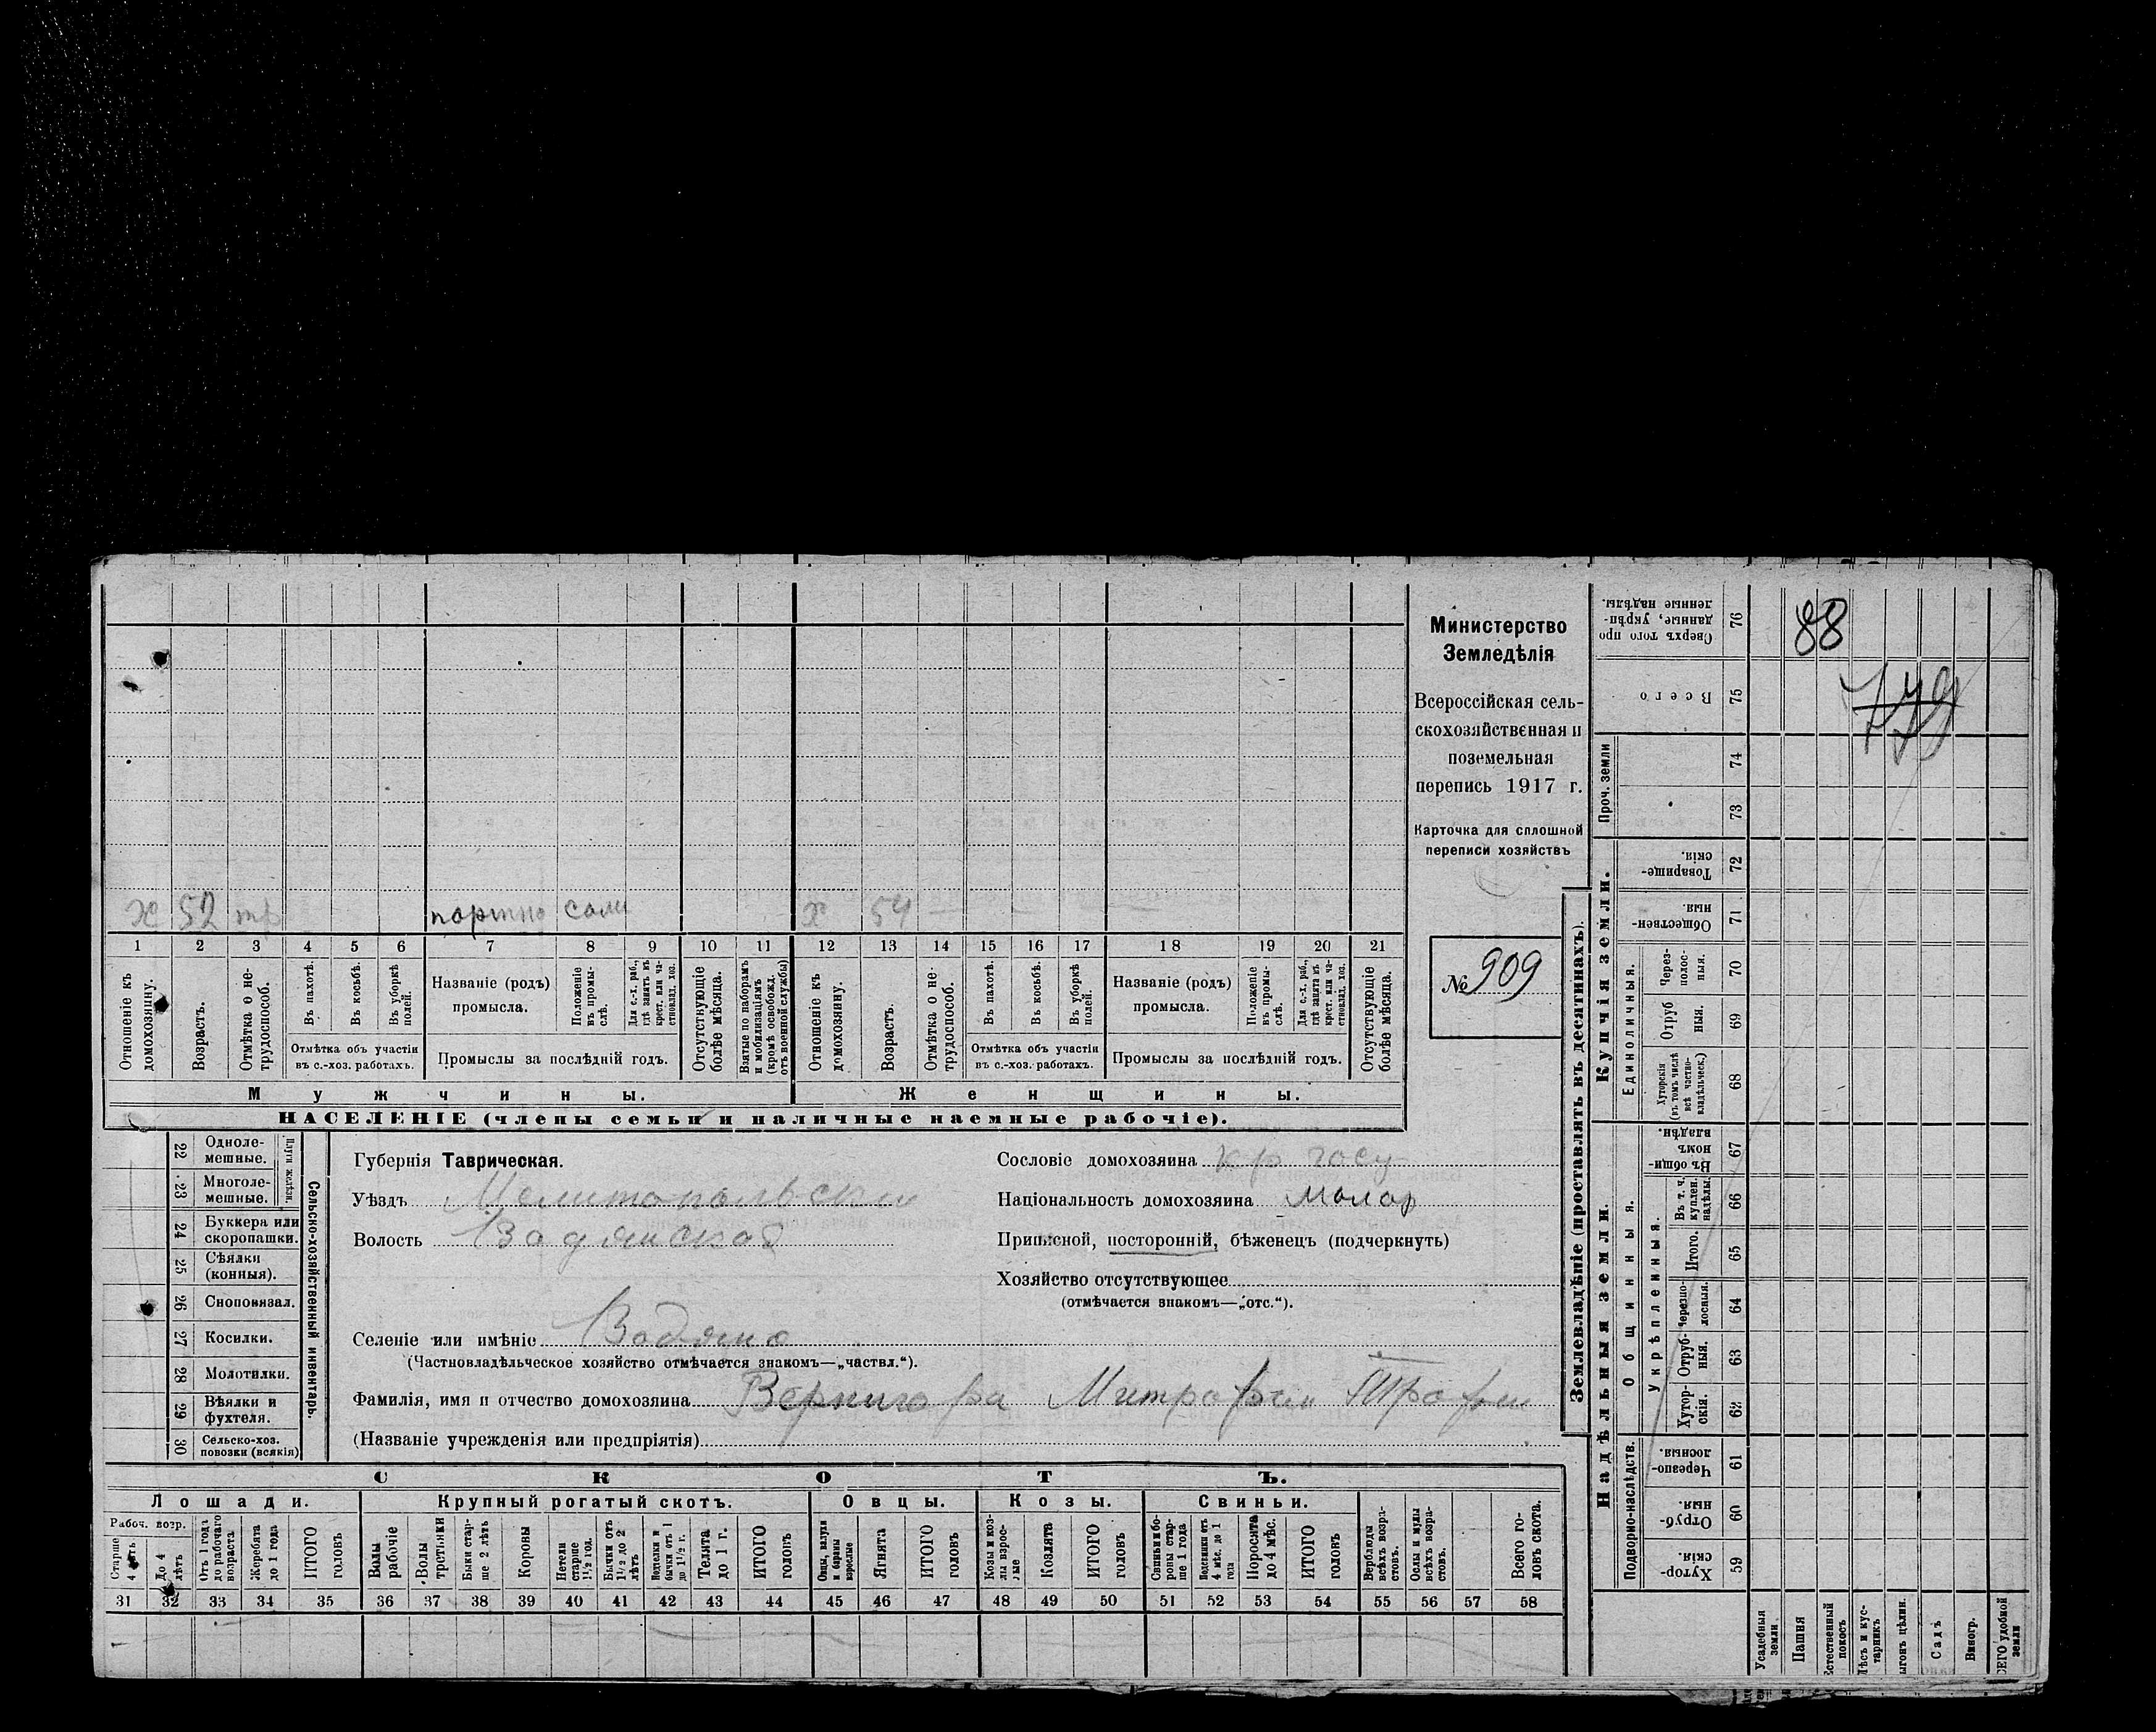 Министерство
Земледѣлія
Всероссійская сель-
скохозяйственная и
поземельная
перепись 1917 г.
Карточка для сплошной
переписи хозяйствъ
№ 909
х 52 тр портно сам х 54
1 2 3 4 5 6 7 8 9 10 11 12 13 14 15 16 17 18 19 20 21
Отношеніе къ домохозяину.
Возрастъ.
Отмѣтка о не-трудоспособ.
Въ пахотѣ.
Въ косьбѣ.
Въ уборкѣ полей.
Отмѣтка объ участіи
въ с.-хоз. работахъ.
Названіе (родъ)
промысла.
Положеніе въ промы-слѣ.
Для с.-х. раб., гдѣ занятъ въ крест. или ча-стновлад. хоз.
Промыслы за послѣдній годъ.
Отсутствующіе болѣе мѣсяца.
Взятые по наборамъ и мобилизаціямъ (кромѣ освобожд. отъ военной службы)
Отношеніе къ домохозяину.
Возрастъ.
Отмѣтка о не-трудоспособ.
Въ пахотѣ.
Въ косьбѣ.
Въ уборкѣ полей.
Отмѣтка объ участіи
въ с.-хоз. работахъ.
Названіе (родъ)
промысла.
Положеніе въ промы-слѣ.
Для с.-х. раб., гдѣ занята въ крест. или ча-стновлад. хоз.
Промыслы за послѣдній годъ.
Отсутствующіе болѣе мѣсяца.
Мужчины.
Женщины.
НАСЕЛЕНІЕ (члены семьи и наличные наемные рабочіе).
22 Одноле-мешные.
23 Многоле-мешные.
Плуги желѣзн.
24 Буккера или скоропашки.
25 Сѣялки (конныя).
26 Сноповязал.
27 Косилки.
28 Молотилки.
29 Вѣялки и фухтеля.
30 Сельско-хоз. повозки (всякія)
Сельско-хозяйственный инвентарь.
Губернія Таврическая.
Уѣздъ Мелитопольски
Волость Водянская
Селеніе или имѣніе Водяно
(Частновладѣльческое хозяйство отмѣчается знакомъ—„частвл.“).
Фамилія, имя и отчество домохозяина Вернигора Митрофан Трофим
(Названіе учрежденія или предпріятія)
Сословіе домохозяина кр госу
Національность домохозяина малор
Приписной, посторонній, бѣженецъ (подчеркнуть)
Хозяйство отсутствующее
(отмѣчается знакомъ—„отс.“).
СКОТЪ.
Лошади. Крупный рогатый скотъ. Овцы. Козы. Свиньи.
Рабоч. возр.
Старше 4 лѣтъ
До 4 лѣтъ
Отъ 1 года до рабочаго возраста
Жеребята до 1 года
ИТОГО головъ
Волы рабочіе
Волы третьяки
Быки стар-ше 2 лѣтъ
Коровы
Нетели старше 1½ год.
Бычки отъ 1½ до 2 лѣтъ
Телки и бычки отъ 1 до 1½ г.
Телята до 1 г.
ИТОГО головъ
Овцы, валухи и бараны взрослые
Ягнята
ИТОГО головъ
Козы и коз-лы взрос-лые
Козлята
ИТОГО головъ
Свиньи и бо-ровы стар-ше 1 года
Подсвинки отъ 4 мѣс. до 1 года
Поросята до 4 мѣс.
ИТОГО головъ
Верблюды всѣхъ возра-стовъ.
Ослы и мулы всѣхъ возра-стовъ.
Всего го-ловъ скота.
31 32 33 34 35 36 37 38 39 40 41 42 43 44 45 46 47 48 49 50 51 52 53 54 55 56 57 58
Землевладѣніе (проставлять въ десятинахъ).
Надѣльныя земли.
Купчія земли.
Проч. земли
Сверхъ того про данные, укрѣп-ленные надѣлы. 76
Всего 75
74
73
Товарище-скія. 72
Обществен-ныя. 71
Единоличныя.
Через-полос-ныя. 70
Отруб ныя. 69
Хуторскія (въ томъ числѣ всѣ частно-владѣльческ.) 68
Общинныя.
Въ общи-номъ владѣн. 67
Укрѣпленныя.
Въ т. ч. куплен. надѣлы. 66
Итого. 65
Черезпо-лосныя. 64
Отруб-ныя. 63
Хутор-скія. 62
Подворно-наслѣдств.
Черезпо-лосныя. 61
Отруб-ныя. 60
Хутор-скія. 59
Усадебныя земли
Пашня
Естественный покосъ
Лѣсъ и кус-тарникъ
Выгонъ цѣлин.
Садъ
Виногр.
ВСЕГО удобной земли
88
779